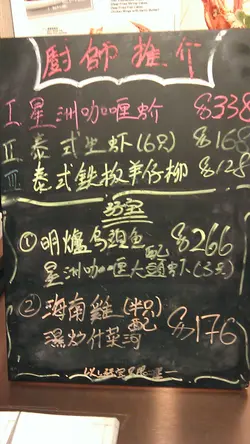 廚師推介
I. 星洲咖喱蚧 $338
II 泰式生虾(6只) $168
III 泰式鉄板羊仔柳 $128
① 明爐烏頭魚 $266
配
星洲咖喱大頭虾(3只)
② 海南雞(半只) $176
配
濕炒什菜